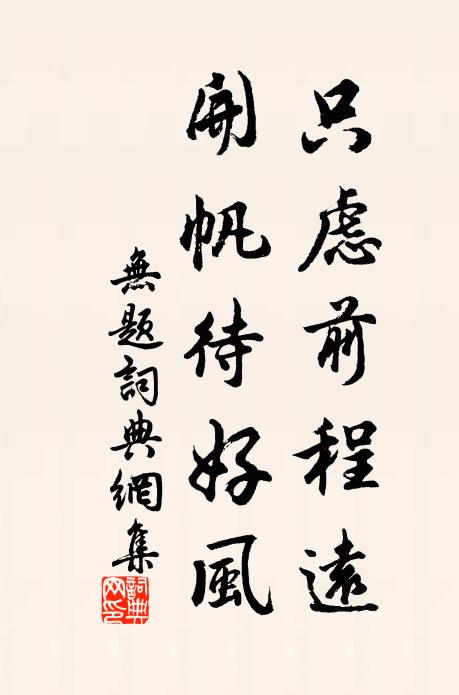 只慮前程遠
開帆待好風
無題詞典網集
詞典
网印